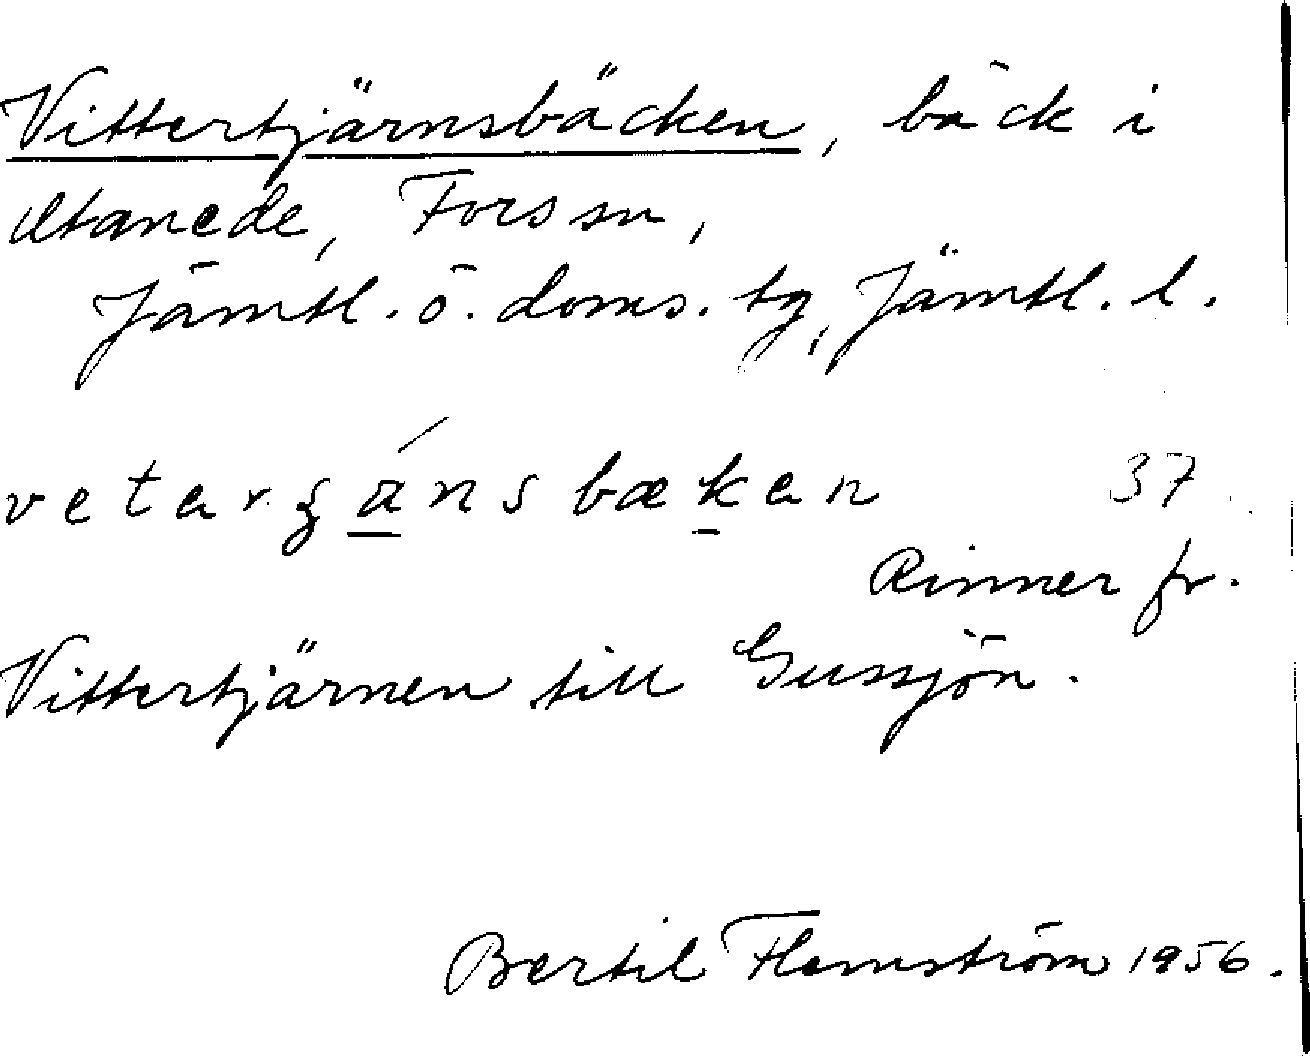 Vittertjärnsbäcken, bäck i
Utanede, Fors sn,
Jämtl. ö. doms. tg, Jämtl. l.
37
Rinner fr.
Vittertjärnen till Gussjön.
Bertil Flemström 1956.